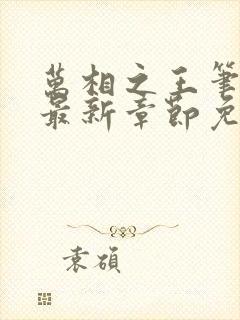 萬相之王筆
最新章節免
袁碩